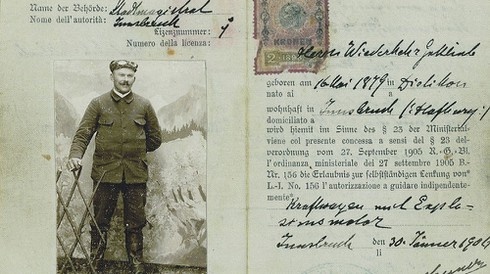 Name der Behörde: Stadtmagistrat
Nome dell'autorità: Innsbruck
Lizenznummer: 1
Numero della licenza:
KRONEN
2
Herrn Wiederkehr Gottlieb
geboren am 16 Mai 1879 in Dietikon
nato al a
wohnhaft in Innsbruck (Hofburg)
domiciliato a
wird hiemit im Sinne des § 23 der Ministerial-
viene col presente concessa a sensi del § 23 del-
verordnung vom 27. September 1905 R.-G.-Bl.
l'ordinanza ministeriale dei 27 settembre 1905 B.-
Nr. 156 die Erlaubnis zur selbständigen Lenkung von"
L.-I. No. 156 l'autorizzazione a guidare indipendente-
mente"
Kraftwagen mit Explo-
sionsmotor
Innsbruck den 30. Jänner
li